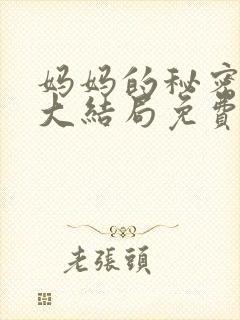 妈妈的秘密
大結局免費
老張頭